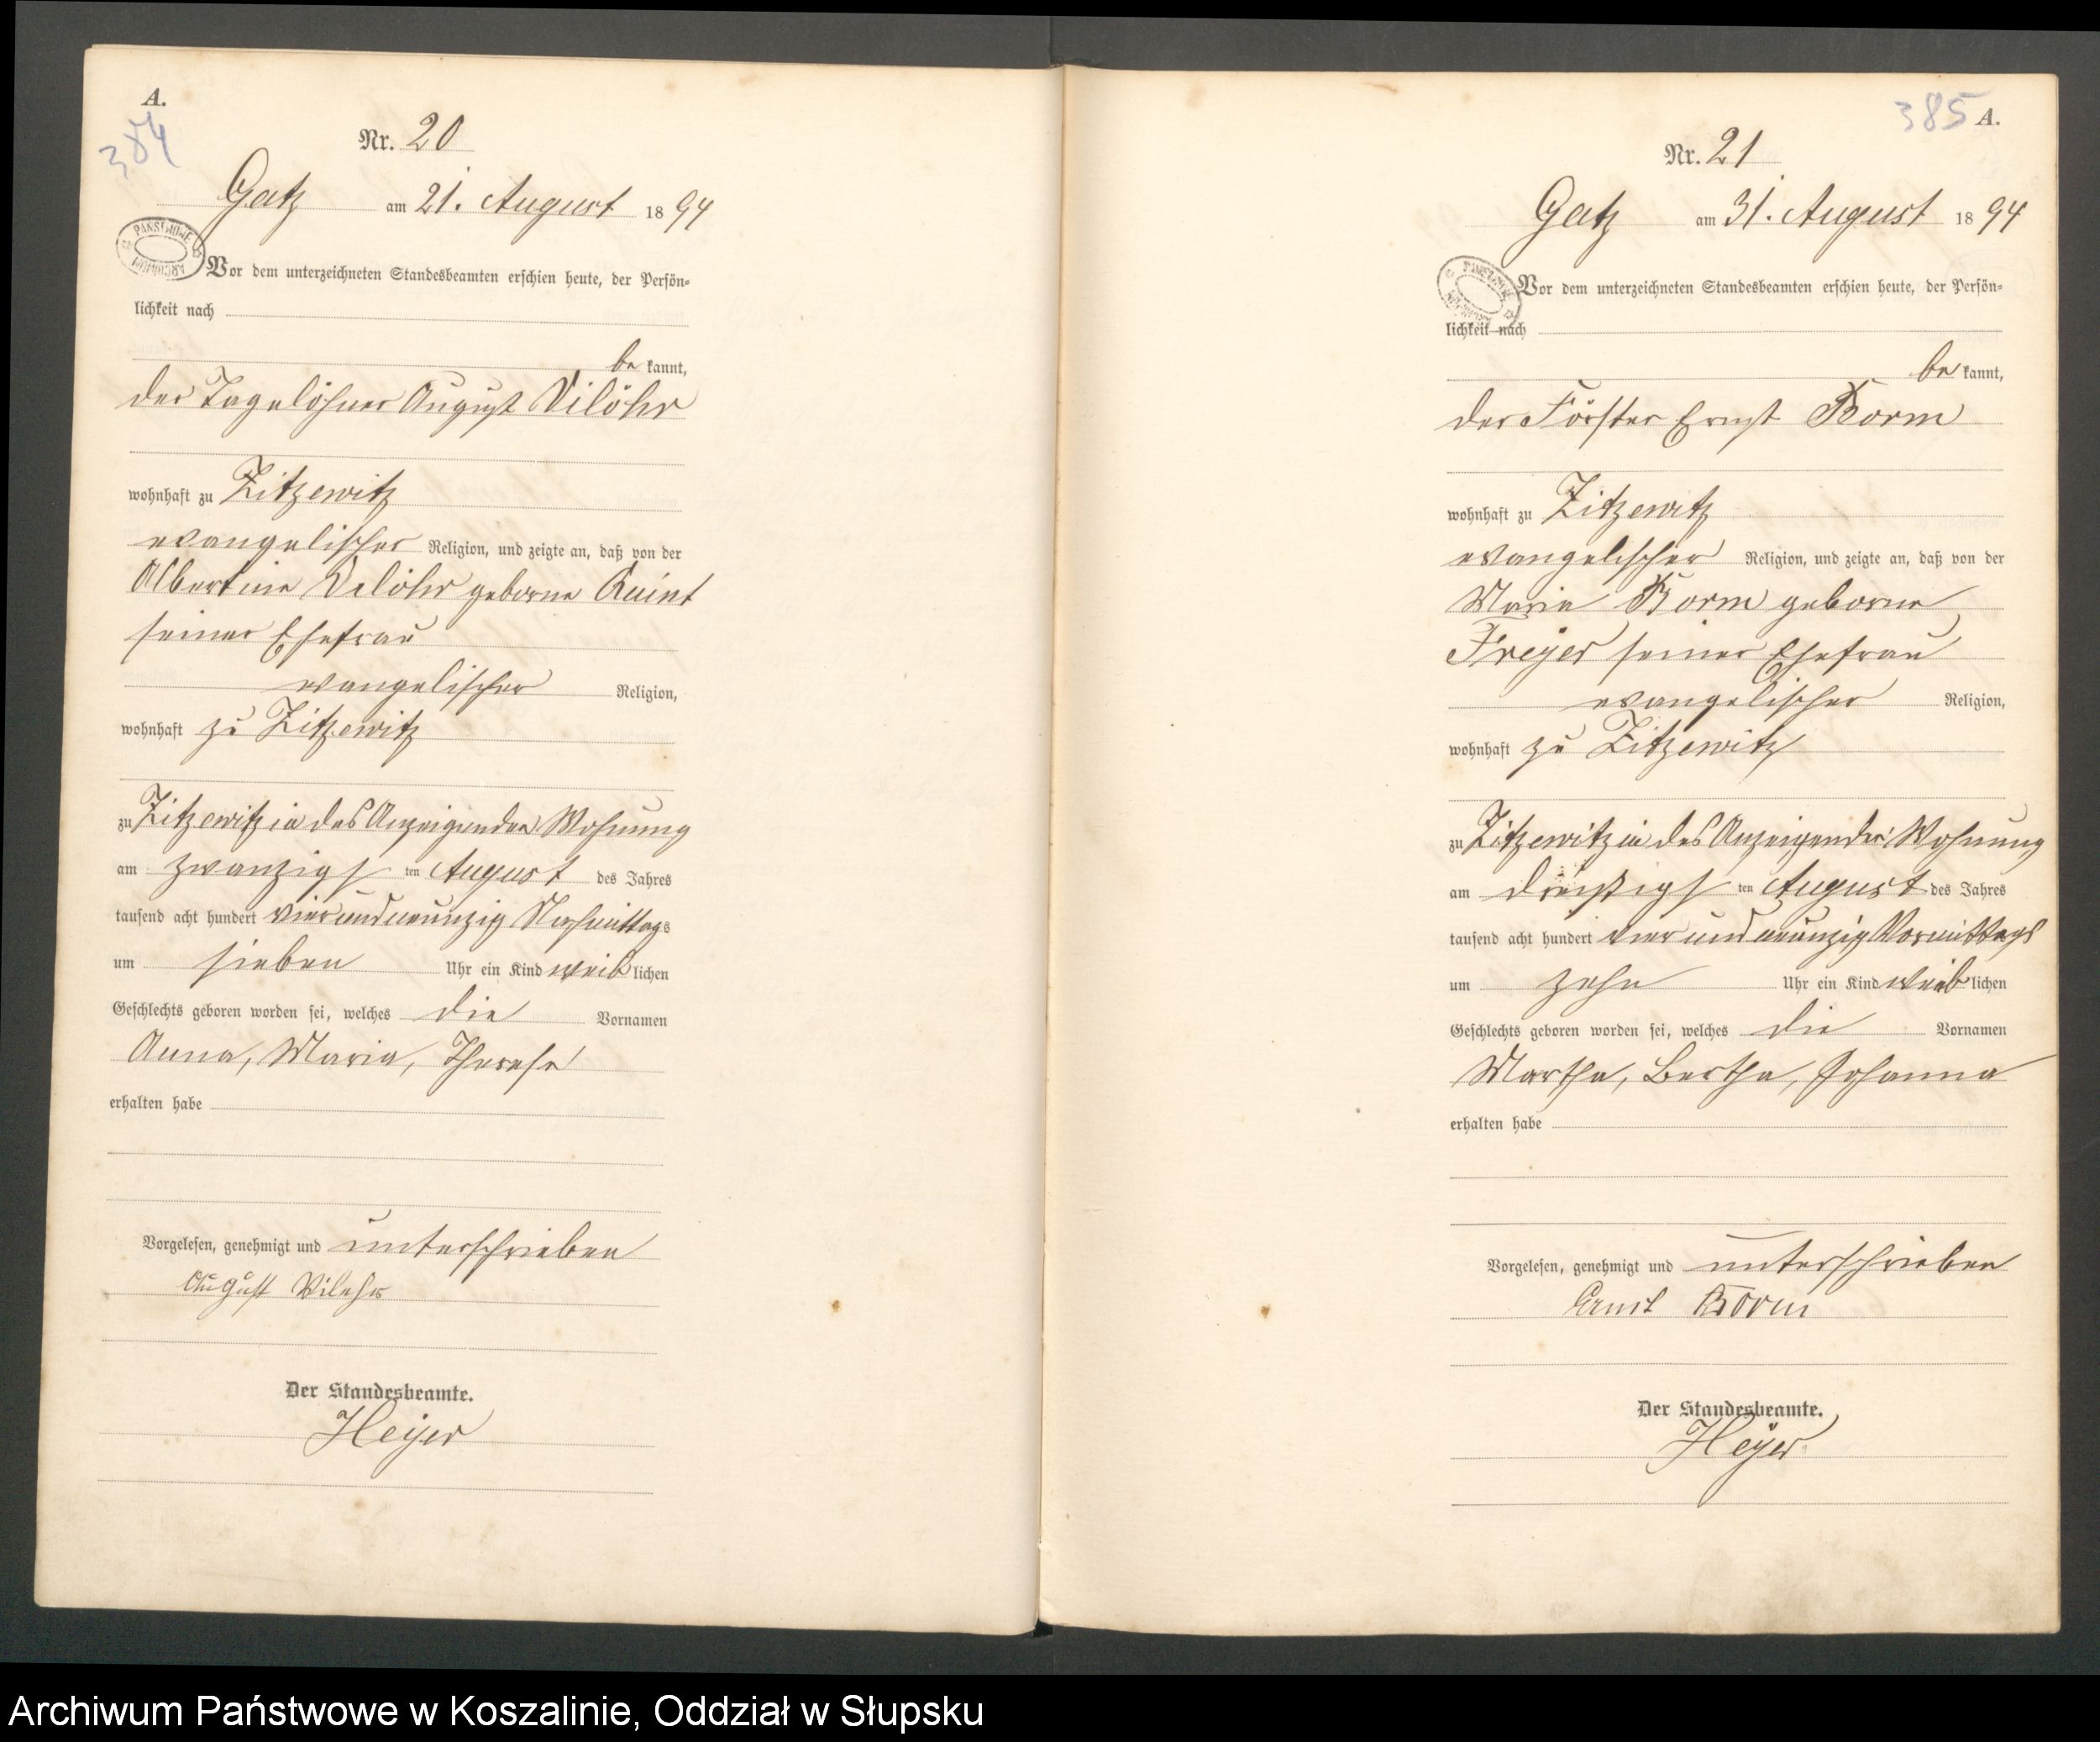 A.
384
Nr. 20
Gatz am 21. August 1894
PAŃSTWOWE ARCHIWUM
Vor dem unterzeichneten Standesbeamten erschien heute, der Persön-
lichkeit nach
be kannt,
der Tagelöhner August Vilöhr
wohnhaft zu Zitzewitz
evangelischer Religion, und zeigte an, daß von der
Albertine Vilöhr geborne Quint
seiner Ehefrau
evangelischer Religion,
wohnhaft zu Zitzewitz
zu Zitzewitz in des Anzeigenden Wohnung
am zwanzigsten August des Jahres
tausend acht hundert vierundneunzig Nachmittags
um sieben Uhr ein Kind weiblichen
Geschlechts geboren worden sei, welches die Vornamen
Anna, Maria, Therese
erhalten habe
Vorgelesen, genehmigt und unterschrieben
August Vilehr
Der Standesbeamte.
Heyer
385 A.
Nr. 21
Gatz am 31. August 1894
Vor dem unterzeichneten Standesbeamten erschien heute, der Persön-
lichkeit nach
be kannt,
der Förster Ernst Borm
wohnhaft zu Zitzewitz
evangelischer Religion, und zeigte an, daß von der
Maria Borm geborne
Freyer seiner Ehefrau
evangelischer Religion,
wohnhaft zu Zitzewitz
zu Zitzewitz in des Anzeigenden Wohnung
am dreißigsten August des Jahres
tausend acht hundert vier und neunzig Vormittags
um zehn Uhr ein Kind weiblichen
Geschlechts geboren worden sei, welches die Vornamen
Martha, Bertha, Johanna
erhalten habe
Vorgelesen, genehmigt und unterschrieben
Ernst Borm
Der Standesbeamte.
Heyer
Archiwum Państwowe w Koszalinie, Oddział w Słupsku